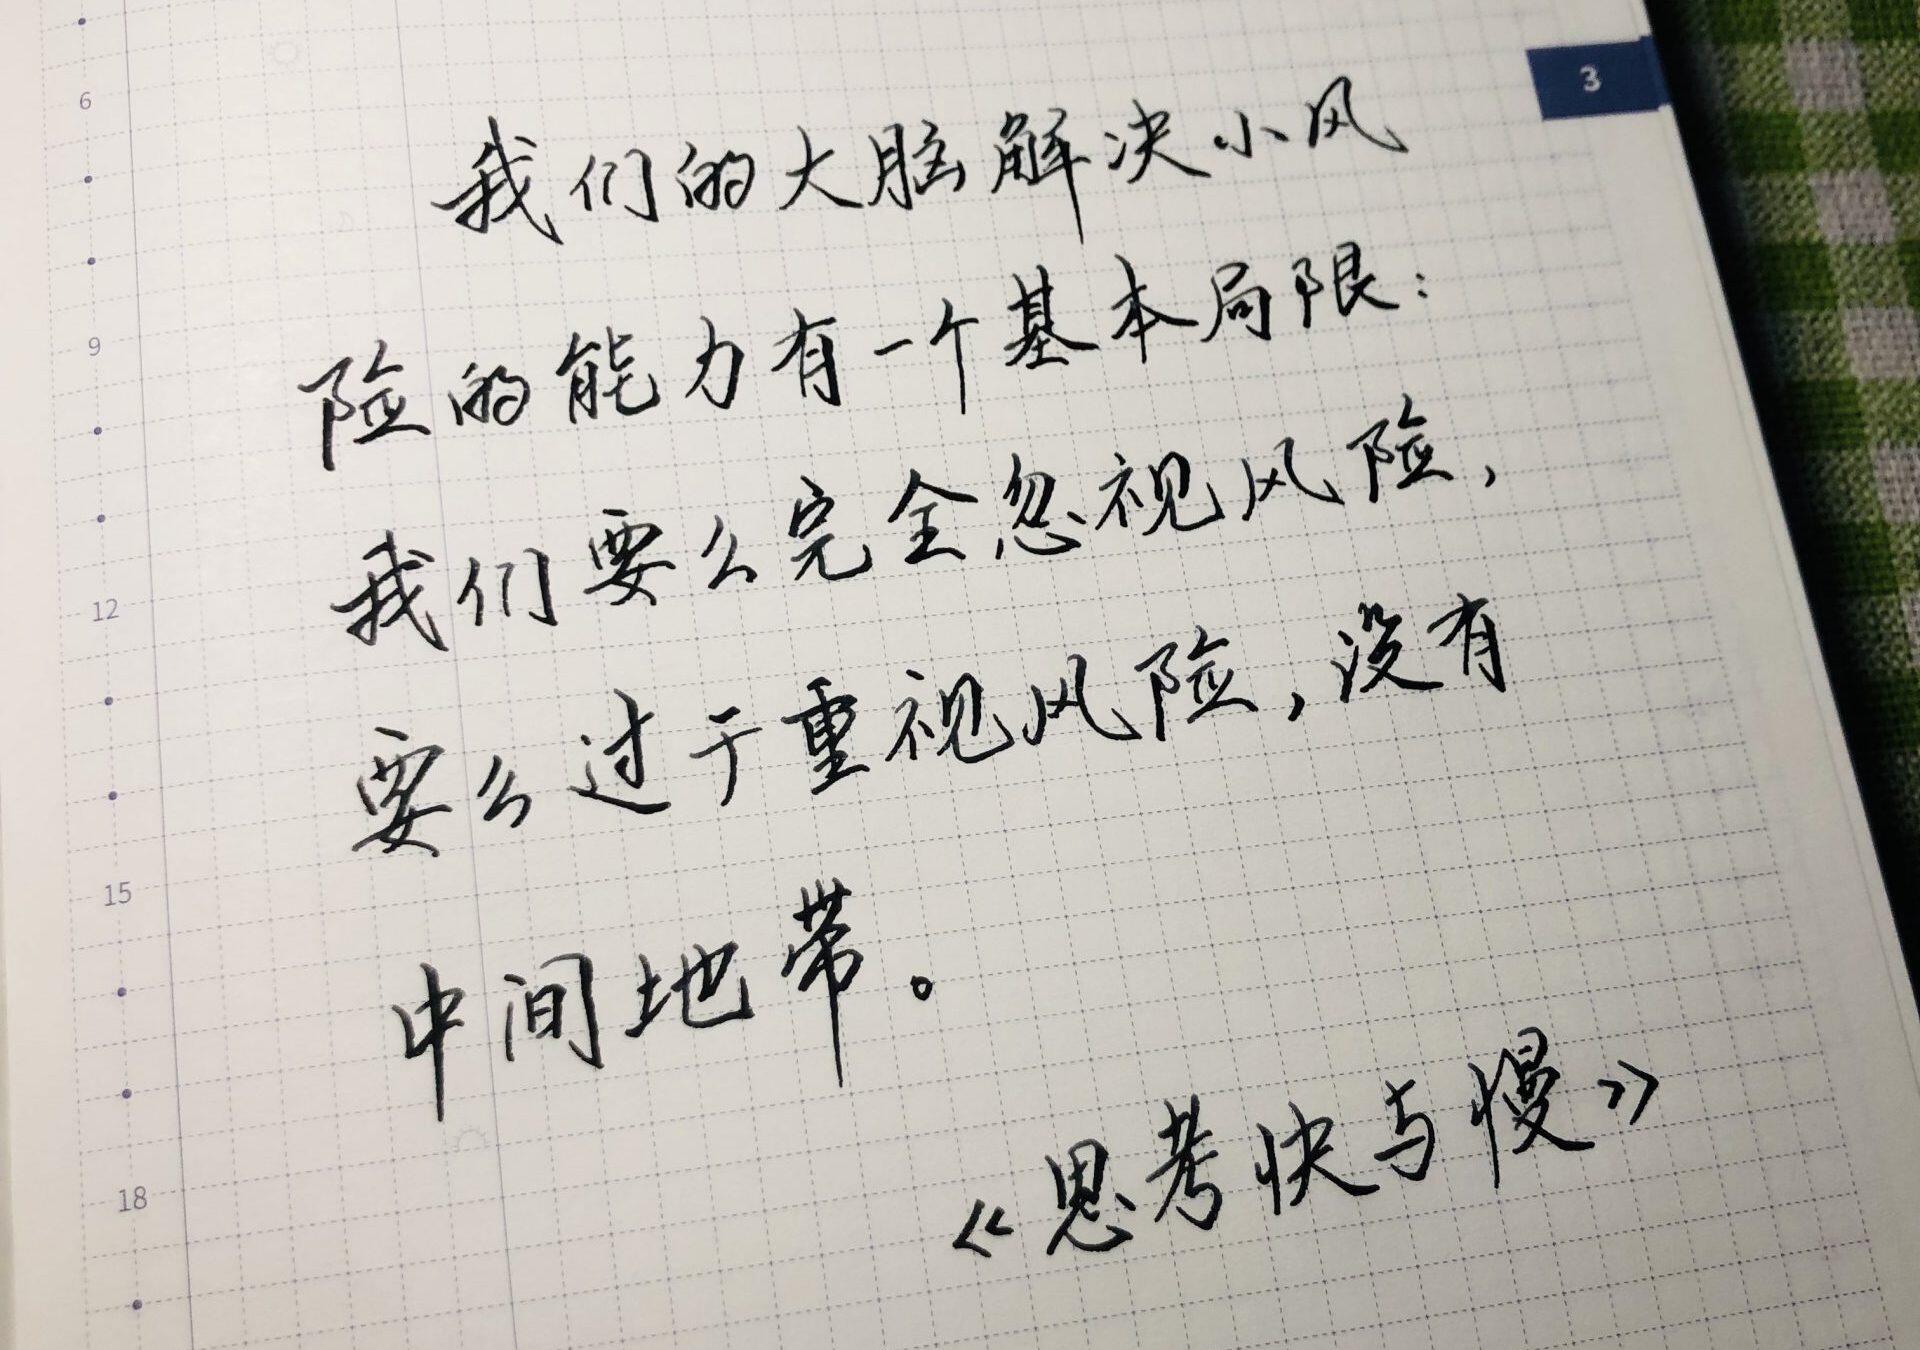 3
6
我们的大脑解决小风
9
险的能力有一个基本局限：
我们要么完全忽视风险，
12
要么过于重视风险，没有
15
中间地带。
18
《思考快与慢》